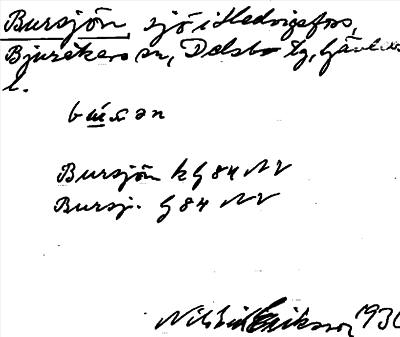 Bursjön, sjö i Hedvigsfors,
Bjuråkers sn, Delsbo tg, Gävleb.
l.
Bursjön k G 84 NV
Bursj. G 84 NV
Eriksson 193